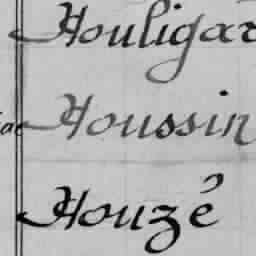 Houligar
Houssin
Houzé